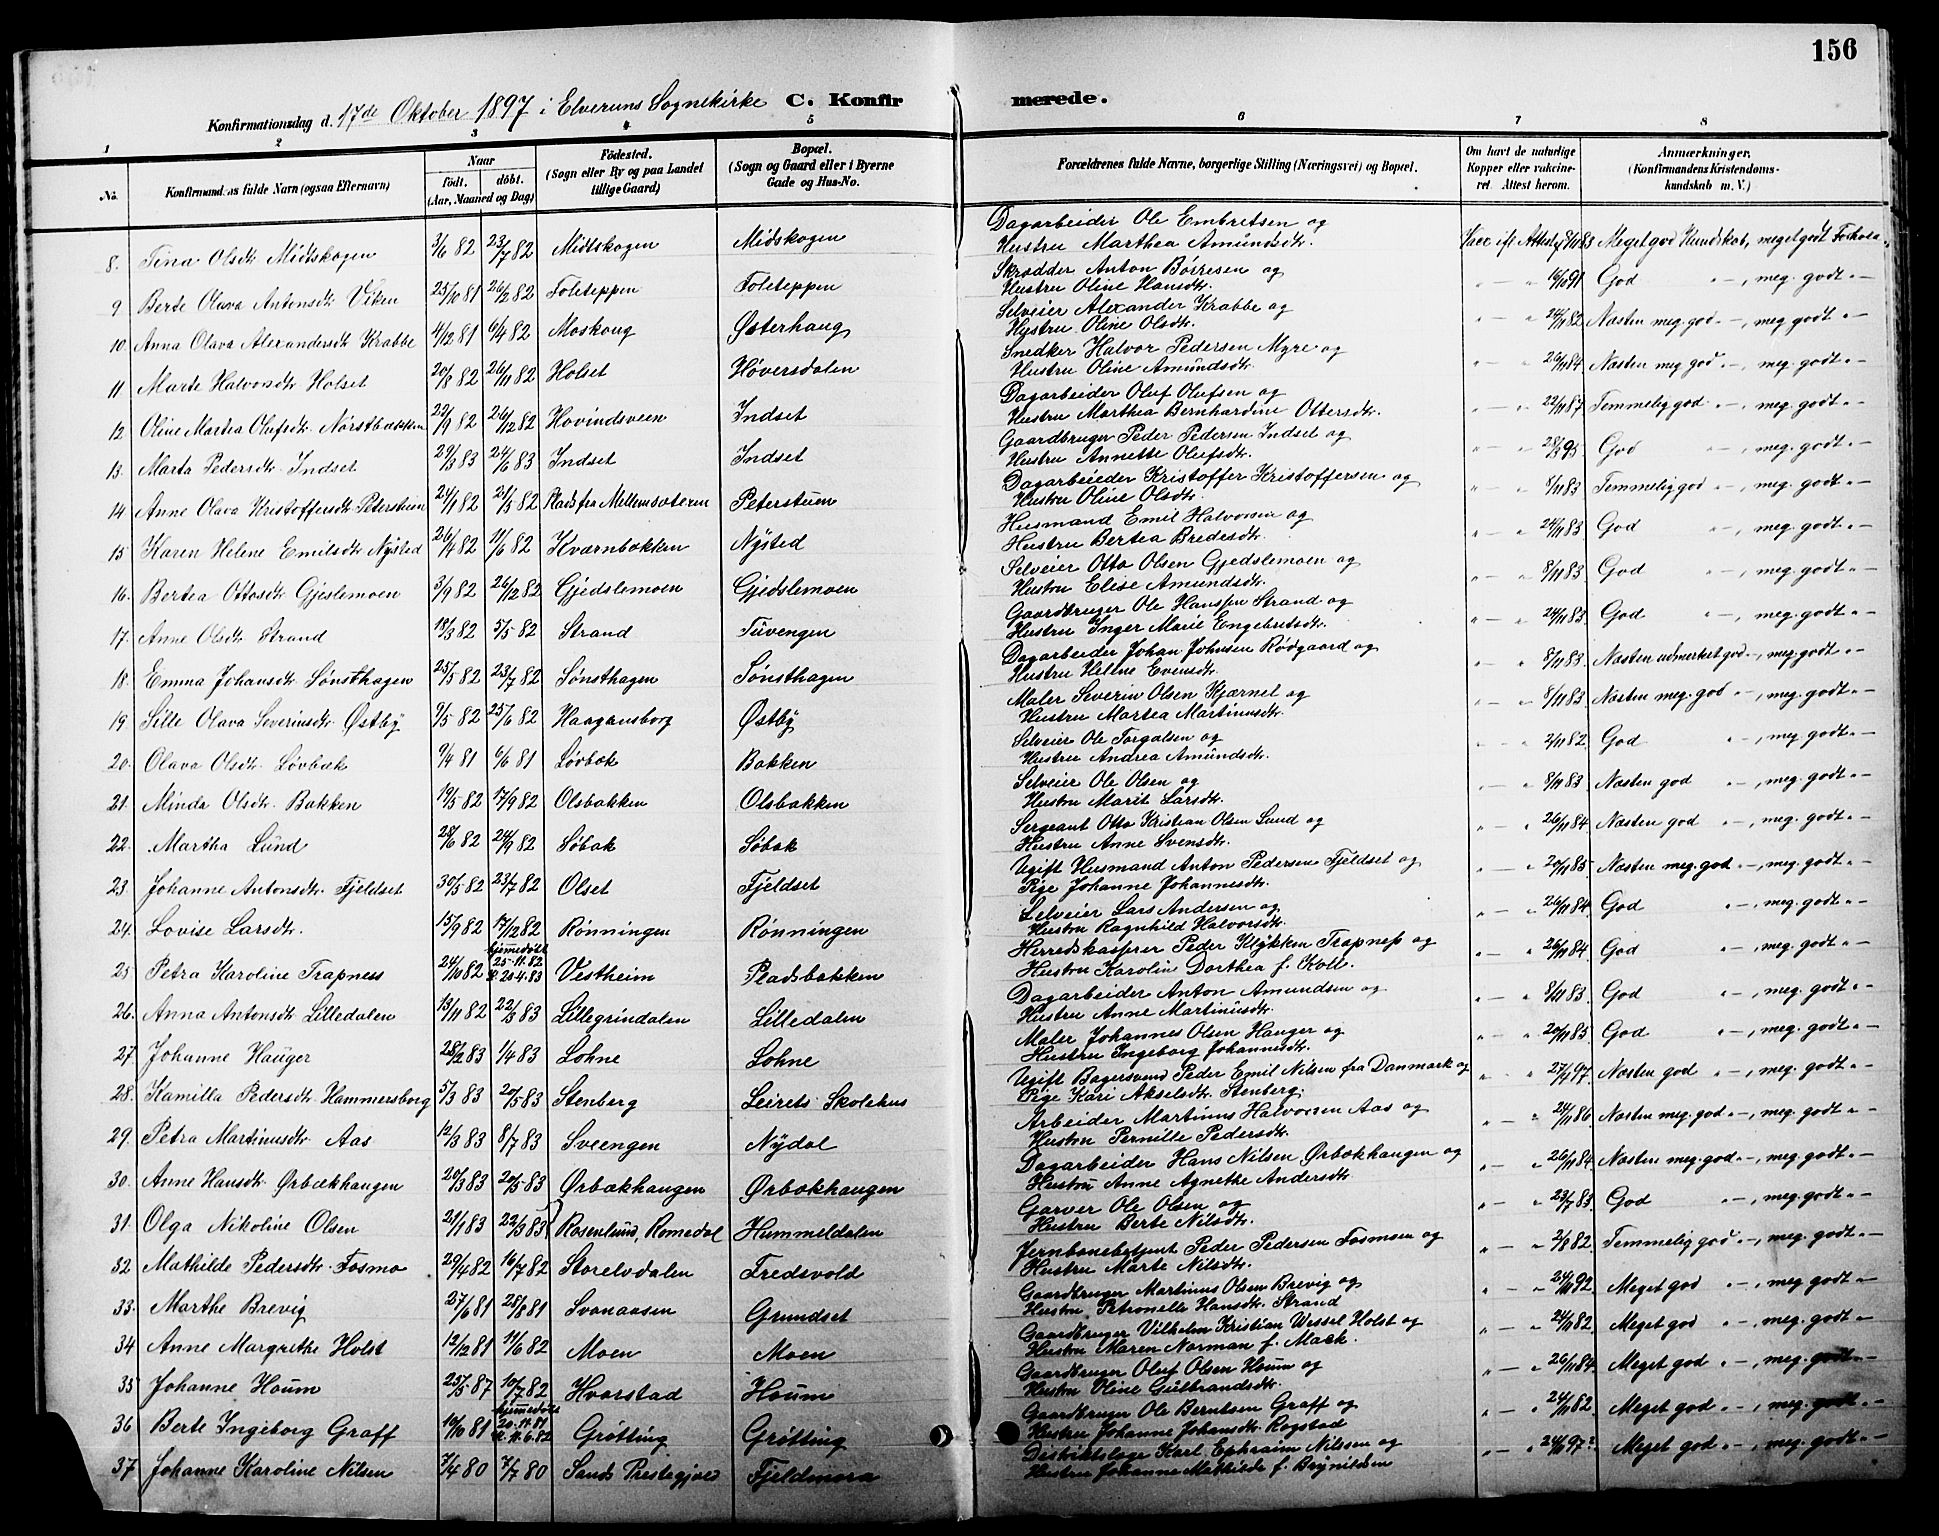 156
Konfirmationsdag d. 17de Oktober 1897 i Elverums Sognekirke C. Konfirmerede.
1 2 3 4 5 6 7 8
No. Konfirmandens fulde Navn (ogsaa Efternavn) Naar født. døbt. (Aar, Maaned og Dag) Fødested. (Sogn eller By og paa Landet tillige Gaard) Bopæl. (Sogn og Gaard eller i Byerne Gade og Hus-No. Forældrenes fulde Navne, borgerlige Stilling (Næringsvei) og Bopæl. Om havt de naturlige Kopper eller vakcineret. Attest herom. Anmærkninger, (Konfirmandens Kristendomskundskab m. V.)
8. Tina Olsdtr. Midtskogen 3/6 82 23/7 82 Midtskogen Midskogen Dagarbeider Ole Embretsen og Hustru Marthea Amundsdtr. Vacc. ifl. Attest f. 8/11 83 Meget god Kundskab, meget godt Forhold
9 Berte Olava Antonsdtr. Viken 25/10 81 26/2 82 Foleteppen Foleteppen Skrædder Anton Børresen og Hustru Oline Hansdtr. " — " 16/10 91 God " —, meg. godt " —
10. Anna Olava Alexandersdtr. Krabbe 4/12 81 6/4 82 Moskoug Østerhaug Selveier Alexander Krabbe og Hustru Oline Olsdtr. " — " 24/11 82 Næsten meg. god " —, meg. godt " —
11 Marte Halvorsdtr. Holset 20/8 82 26/11 82 Holset Høversdalen Snedker Halvor Pedersen Myre og Hustru Oline Amundsdtr. " — " 26/11 84 Næsten meg. god " —, meg. godt " —
12 Oline Martea Olufsdtr. Nørstbækken 22/9 82 26/12 82 Hovindsveen Indset Dagarbeider Oluf Olufsen og Hustru Marthea Bernhardine Ottersdtr. " — " 22/11 87 Temmelig god " —, meg. godt " —
13. Marta Pedersdtr. Indset 29/3 83 24/6 83 Indset Indset Gaardbruger Peder Pedersen Indset og Hustru Annette Olufsdtr. " — " 28/3 95 God " —, meg. godt " —
14 Anne Olava Kristoffersdtr. Peterstuen 24/1 82 21/5 82 Plads fra Mellemsæteren Peterstuen Dagarbeider Kristoffer Kristoffersen og Hustru Oline Olsdtr. " — " 8/11 83 Temmelig god " —, meg. godt " —
15 Karen Helene Emilsdtr. Nysted 26/4 82 11/6 82 Kværnbækken Nysted Husmand Emil Halvorsen og Hustru Bertea Bredesdtr. " — " 24/11 83 God " —, meg. godt " —
16. Bertea Ottosdtr. Gjeslemoen 3/9 82 26/12 82 Gjedslemoen Gjedslemoen Selveier Otto Olsen Gjedslemoen og Hustru Elise Amundsdtr. " — " 8/11 83 God " —, meg. godt " —
17. Anne Olsdtr. Strand 18/3 82 5/5 82 Strand Tuvengen Gaardbruger Ole Hanssen Strand og Hustru Inger Marie Engebretsdtr. " — " 24/11 83 God " —, meg. godt " —
18. Emma Johansdtr. Sønsthagen 25/5 82 23/7 82 Sønsthagen Sønsthagen Dagarbeider Johan Johnsen Rødgaard og Hustru Helene Evensdtr. " — " 8/11 83 Næsten udmerket god " —, meg. godt " —
19. Sille Olava Severinsdtr. Østby 9/5 82 25/6 82 Haagansborg Østby Maler Severin Olsen Kjærnet og Hustru Martea Martinusdtr. " — " 8/11 83 Næsten meg. god " —, meg. godt " —
20. Olava Olsdtr. Løvbæk 9/4 81 6/6 81 Løvbæk Bakken Selveier Ole Torgalsen og Hustru Andrea Amundsdtr. " — " 2/11 82 God " —, meg. godt " —
21. Minda Olsdtr. Bakken 19/5 82 17/9 82 Olsbakken Olsbakken Selveier Ole Olsen og Hustru Marit Larsdtr. " — " 8/11 83 Næsten god " —, meg. godt " —
22. Martha Lund 28/6 82 24/9 82 Søbak Søbak Sergeant Otto Kristian Olsen Lund og Hustru Anne Svensdtr. " — " 26/11 84 Næsten god " —, meg. godt " —
23. Johanne Antonsdtr. Fjeldset 30/5 82 23/7 82 Olset Fjeldset Ugift Husmand Anton Pedersen Fjeldset og Pige Johanne Johannesdtr. " — " 20/11 85 Næsten meg. god " —, meg. godt " —
24. Lovise Larsdtr. 15/9 82 17/12 82 Rønningen Rønningen Selveier Lars Andersen og Hustru Ragnhild Halvorsdtr. " — " 26/11 84 God " —, meg. godt " —
25 Petra Karoline Trapness 24/10 82 hjemmedøbt 25-11.82 20.4.83 Vestheim Pladsbakken Herredskasserer Peder Klykken Trapness og Hustru Karoline Dorthea f. Koll. " — " 26/11 84 God " —, meg. godt " —
26. Anna Antonsdtr. Lilledalen 13/11 82 22/3 83 Lillegrindalen Lilledalen Dagarbeider Anton Amundsen og Hustru Anne Martinusdtr. " — " 8/11 83. God " —, meg. godt " —
27 Johanne Hauger 28/2 83 1/4 83 Lohne Lohne Maler Johannes Olsen Hauger og Hustru Ingeborg Johannesdtr. " — " 20/11 85 God " —, meg. godt " —
28. Kamilla Pedersdtr. Hammersborg 5/3 83 20/5 83 Stenberg Leirets Skolehus Ugift Bagersvend Peder Emil Nilsen fra Danmark og Pige Kari Akselsdtr. Stenberg. " — " 27/4 97 Næsten god " —, meg. godt " —
29. Petra Martinusdtr. Aas 12/3 83 8/7 83 Sveengen Nydal Arbeider Martinus Halvorsen Aas og Hustru Pernille Pedersdtr. " — " 24/11 86 Næsten meg. god " —, meg. godt " —
30. Anne Hansdtr. Ørbækhaugen 20/3 83 20/5 83 Ørbækhaugen Ørbækhaugen Dagarbeider Hans Nilsen Ørbækhaugen og Hustru Anne Agnethe Andersdtr. " — " 26/11 84 Næsten meg. god " —, meg. godt " —
31. Olga Nikoline Olsen 21/1 83 22/3 83 Rosenlund, Romedal Hummeldalen Garver Ole Olsen og Hustru Berte Nilsdtr. " — " 23/7 83 God " —, meg. godt " —
32. Mathilde Pedersdtr. Fosmo 29/4 82 16/7 82 Storelvdalen Fredsvold Jernbanebetjent Peder Pedersen Fosmoen og Hustru Marte Nilsdtr. " — " 2/8 82 Temmelig god " —, meg. godt " —
33. Marthe Brevig 27/6 81 28/8 81 Svanaasen Grundset Gaardbruger Martinus Olsen Brevig og Hustru Petronelle Hansdtr. Strand " — " 24/11 92 Meget god " —, meg. godt " —
34 Anne Margrethe Holst 12/12 81 11/6 82 Moen Moen Gaardbruger Vilhelm Kristian Wessel Holst og Hustru Maren Norman f. Mack. " — " 24/11 82 Meget god " —, meg. godt " —
35 Johanne Houm 25/5 87 10/7 82 Hvarstad Houm Gaardbruger Oluf Olsen Houm og Hustru Oline Gulbrandsdtr. " — " 26/11 84 Meget god " —, meg. godt " —
36 Berte Ingeborg Graff 10/10 81 hjemmedøbt 20-11.81 11.6.82 Grøtting Grøtting Gaardbruger Ole Berntsen Graff og Hustru Johanne Johansdtr. Rogstad " — " 24/11 82 Meget god " —, meg. godt " —
37 Johanne Karoline Nilsen 7/4 80 7/7 80 Sands Prestegjeld Fjeldmora Distriktslæge Karl Ephraim Nilsen og Hustru Johanne Mathilde f. Brynildsen " — " 24/11 97 Meget god " —, meg. godt " —